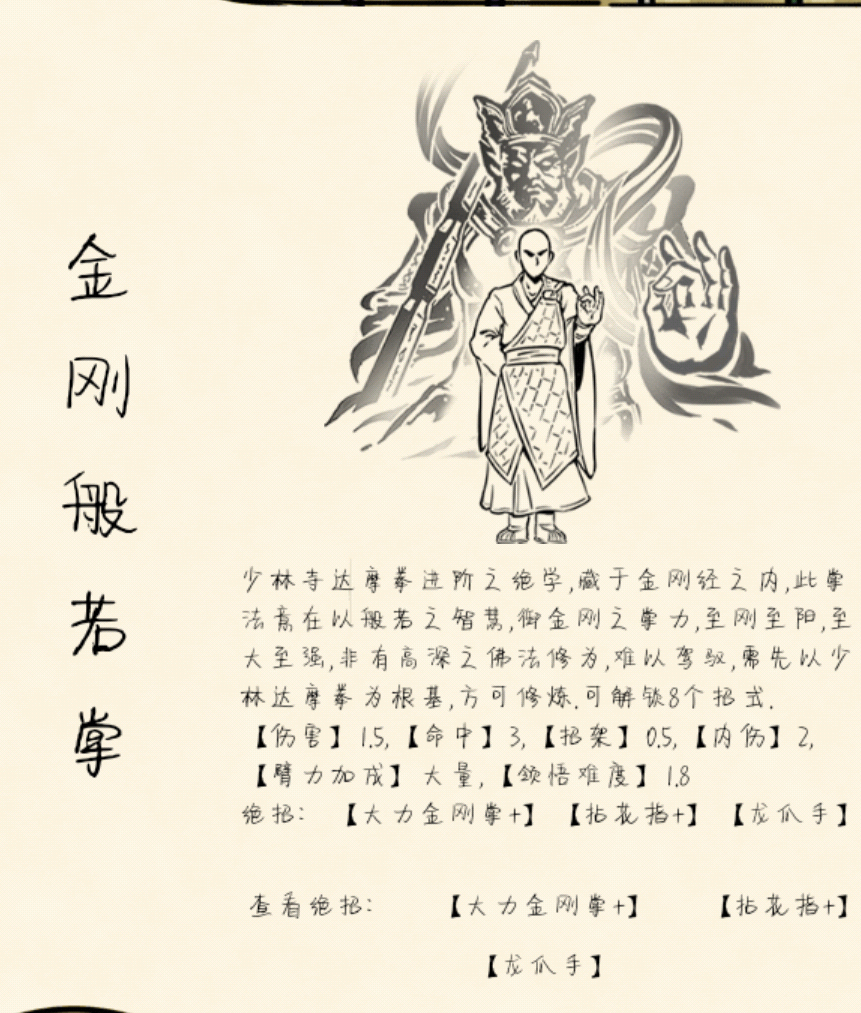 金刚般若掌
少林寺达摩拳进阶之绝学,藏于金刚经之内,此掌
法意在以般若之智慧,御金刚之掌力,至刚至阳,至
大至强,非有高深之佛法修为,难以驾驭,需先以少
林达摩拳为根基,方可修炼.可解锁8个招式.
【伤害】1.5,【命中】3,【招架】0.5,【内伤】2,
【臂力加成】大量,【领悟难度】1.8
绝招: 【大力金刚掌+】 【拈花指+】 【龙爪手】
查看绝招: 【大力金刚掌+】 【拈花指+】
【龙爪手】